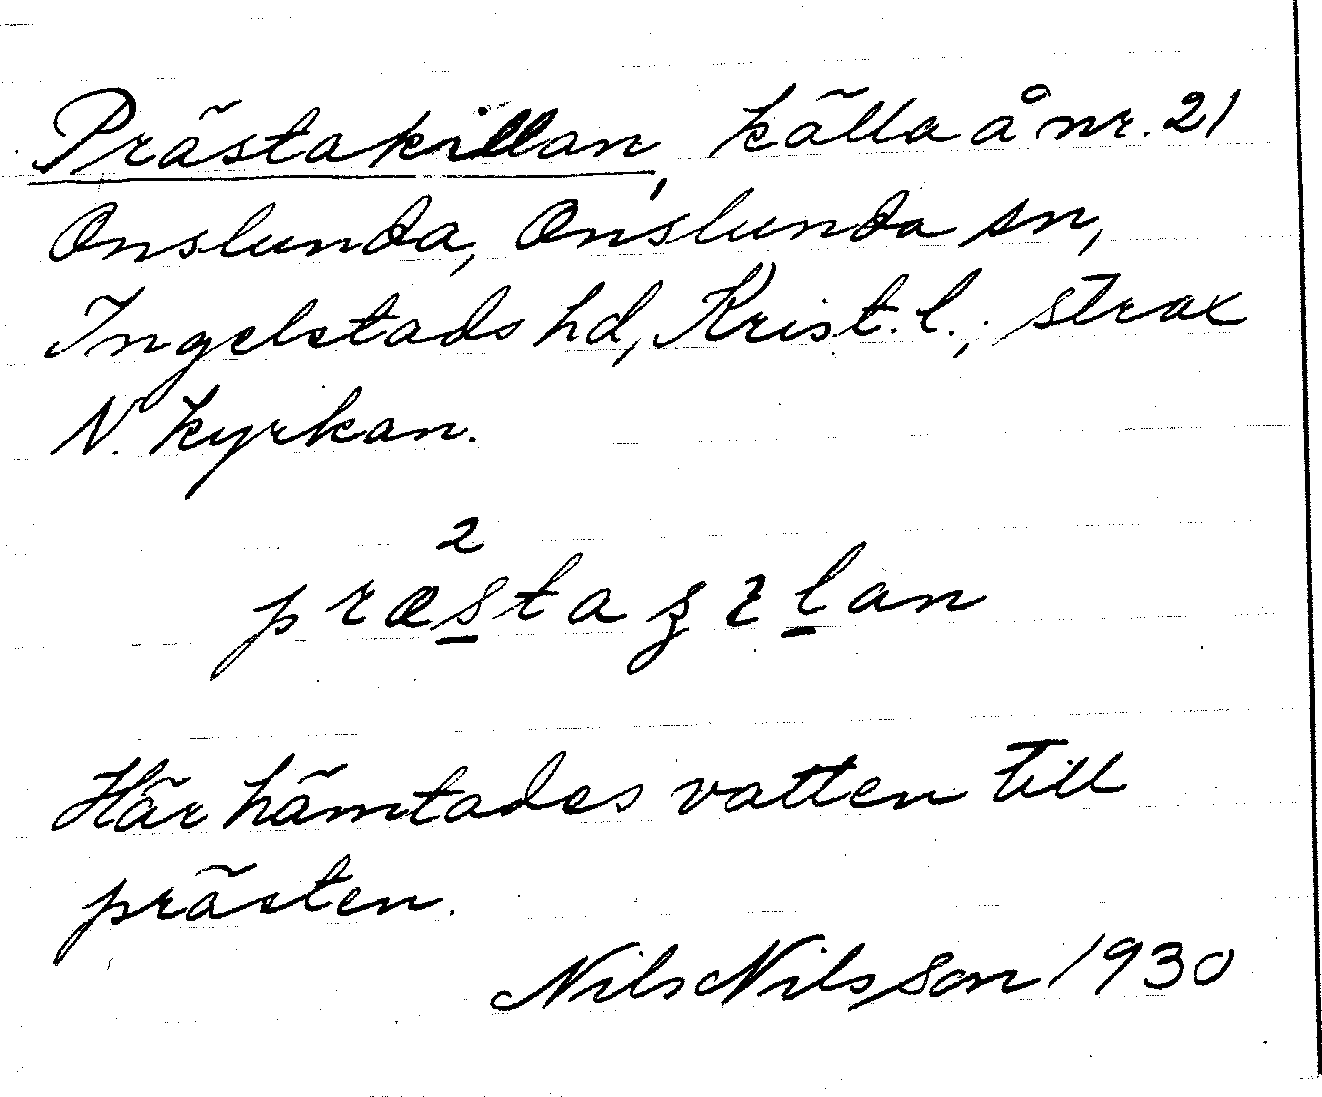 Prästakillan, källa å nr. 21
Onslunda, Onslunda sn,
Ingelstads hd, Krist. l., strax
N. kyrkan.
2
præstaʒɿlan
Här hämtades vatten till
prästen.
Nils Nilsson 1930